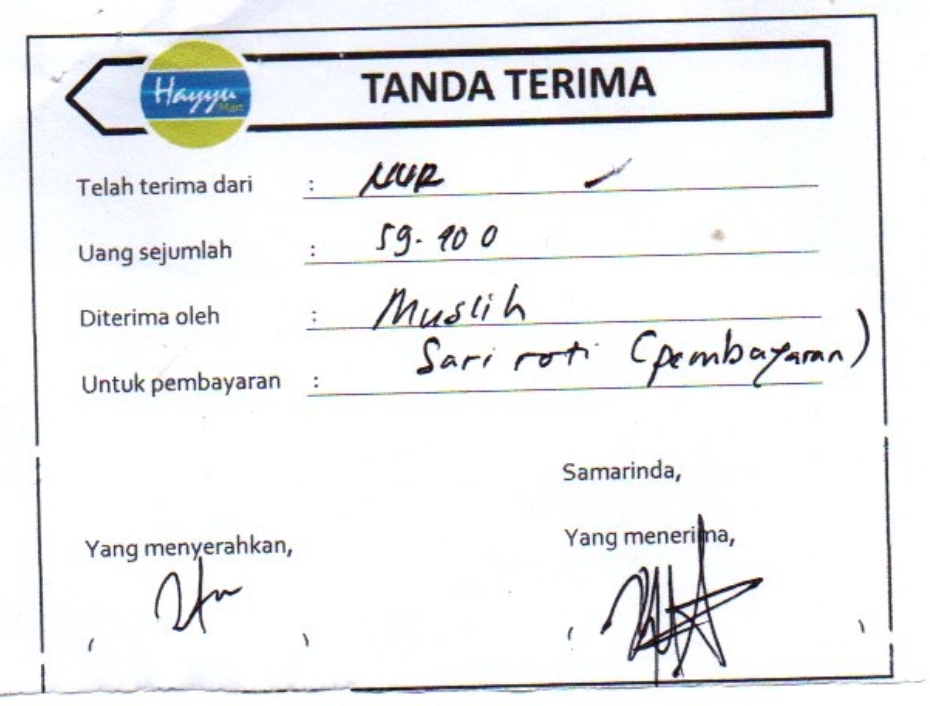 Hayyu Mart
TANDA TERIMA
Telah terima dari : NUR
Uang sejumlah : 59.400
Diterima oleh : Muslih
Untuk pembayaran : Sari roti (pembayaran)
Samarinda,
Yang menyerahkan, Yang menerima,
( ) ( )